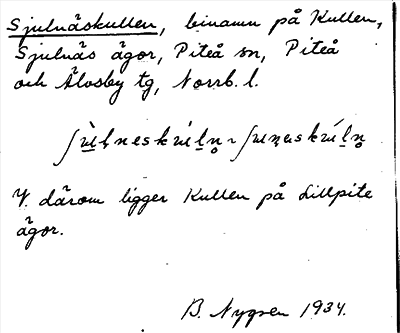 Sjulnäskullen, binamn på Kullen,
Sjulnäs ägor, Piteå sn, Piteå
och Älvsby tg, Norrb. l.
V. därom ligger Kullen på Lillpite
ägor.
B. Nygren 1934.